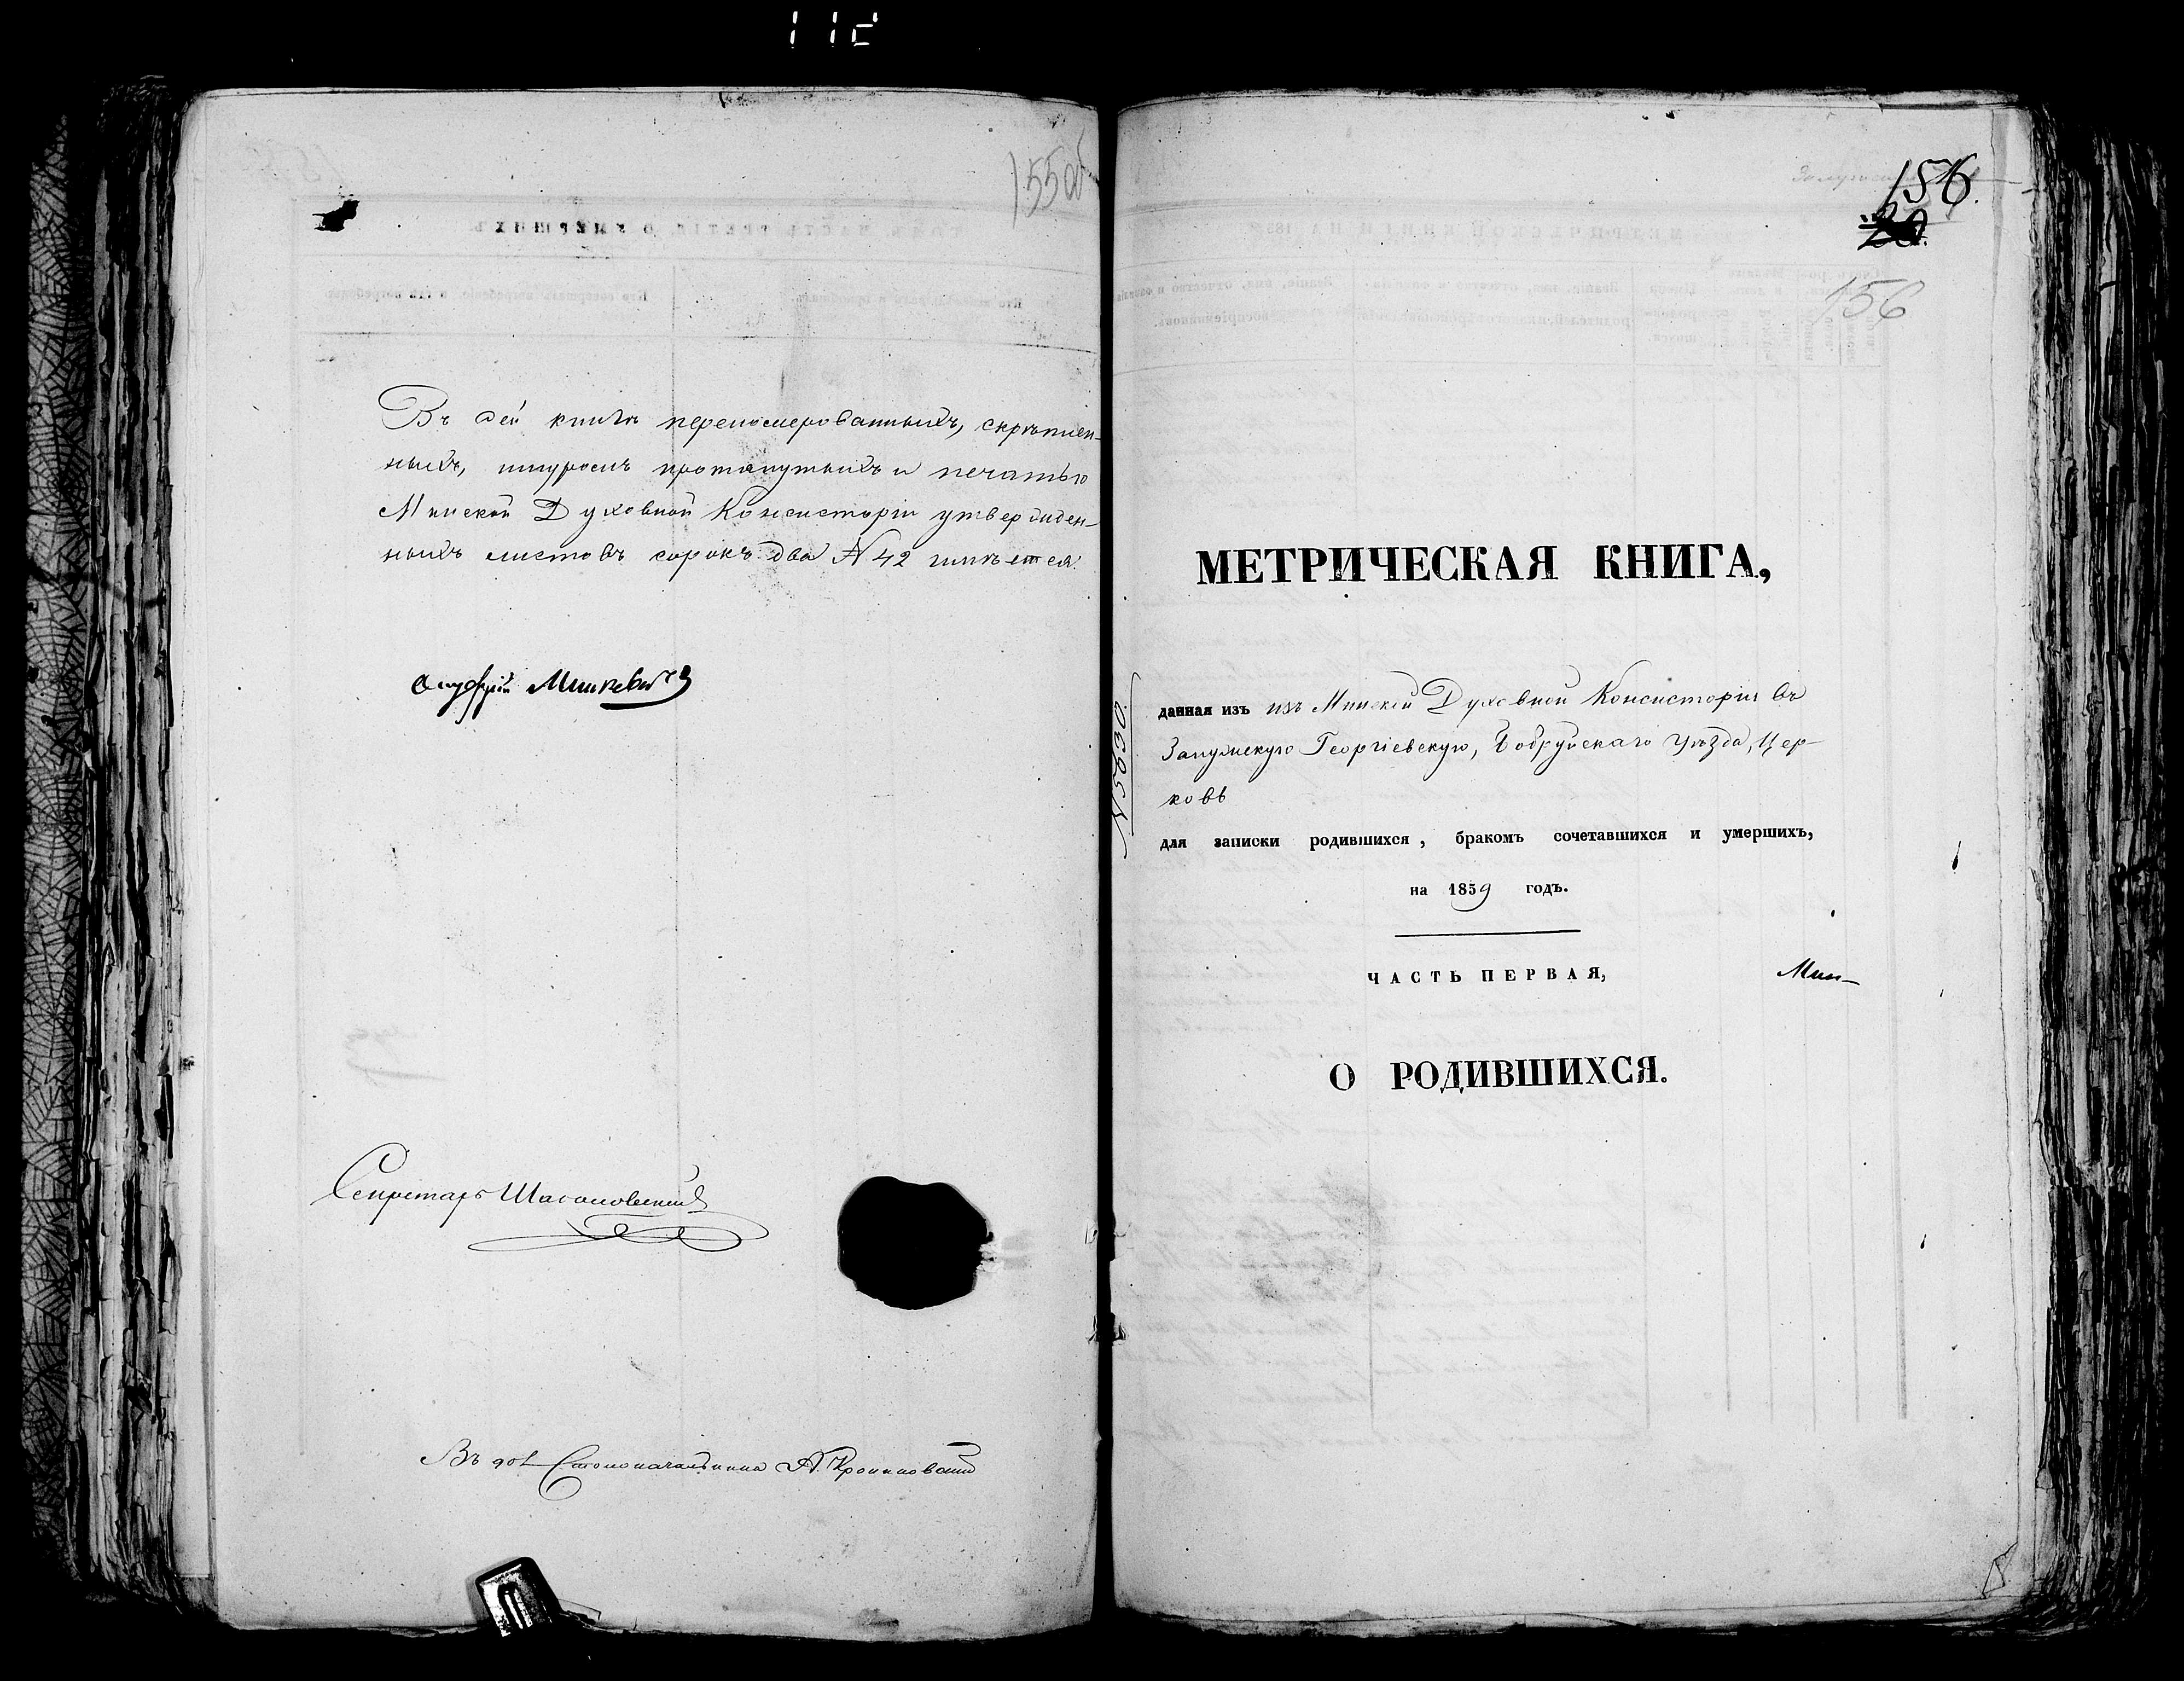 155об
Въ сей книгѣ переномерованныхъ, скрѣплен-
ныхъ, шнуромъ протянутыхъ и печатью
Минской Духовной Консисторіи утвержден-
ныхъ листовъ сорокъ два № 42 имѣется.
Онуфрій Минкевичъ
Секретарь
Въ дол. Столоначальника А.
156.
20.
156
МЕТРИЧЕСКАЯ КНИГА,
данная изъ изъ Минской Духовной Консисторіи въ
Георгіевскую, Бобруйскаго уѣзда, Цер-
ковь
для записки родившихся, бракомъ сочетавшихся и умершихъ,
на 1859 годъ.
ЧАСТЬ ПЕРВАЯ,
Мин-
О РОДИВШИХСЯ.
№5630.